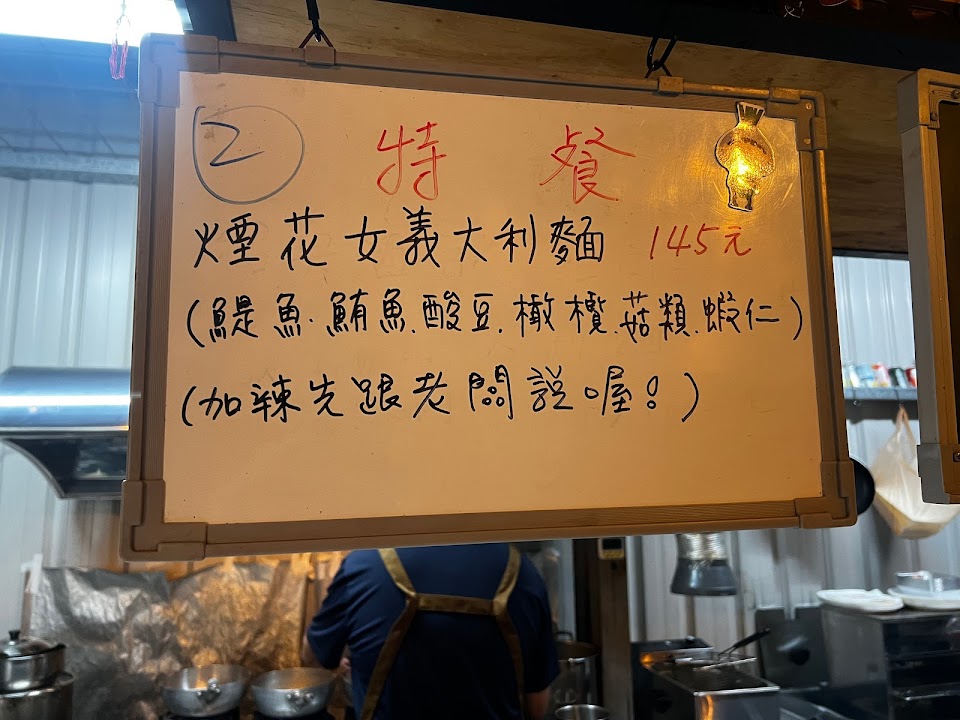 ② 特餐
煙花女義大利麵 145元
(鯷魚.鮪魚.酸豆.橄欖.菇類.蝦仁)
(加辣先跟老闆說喔!)